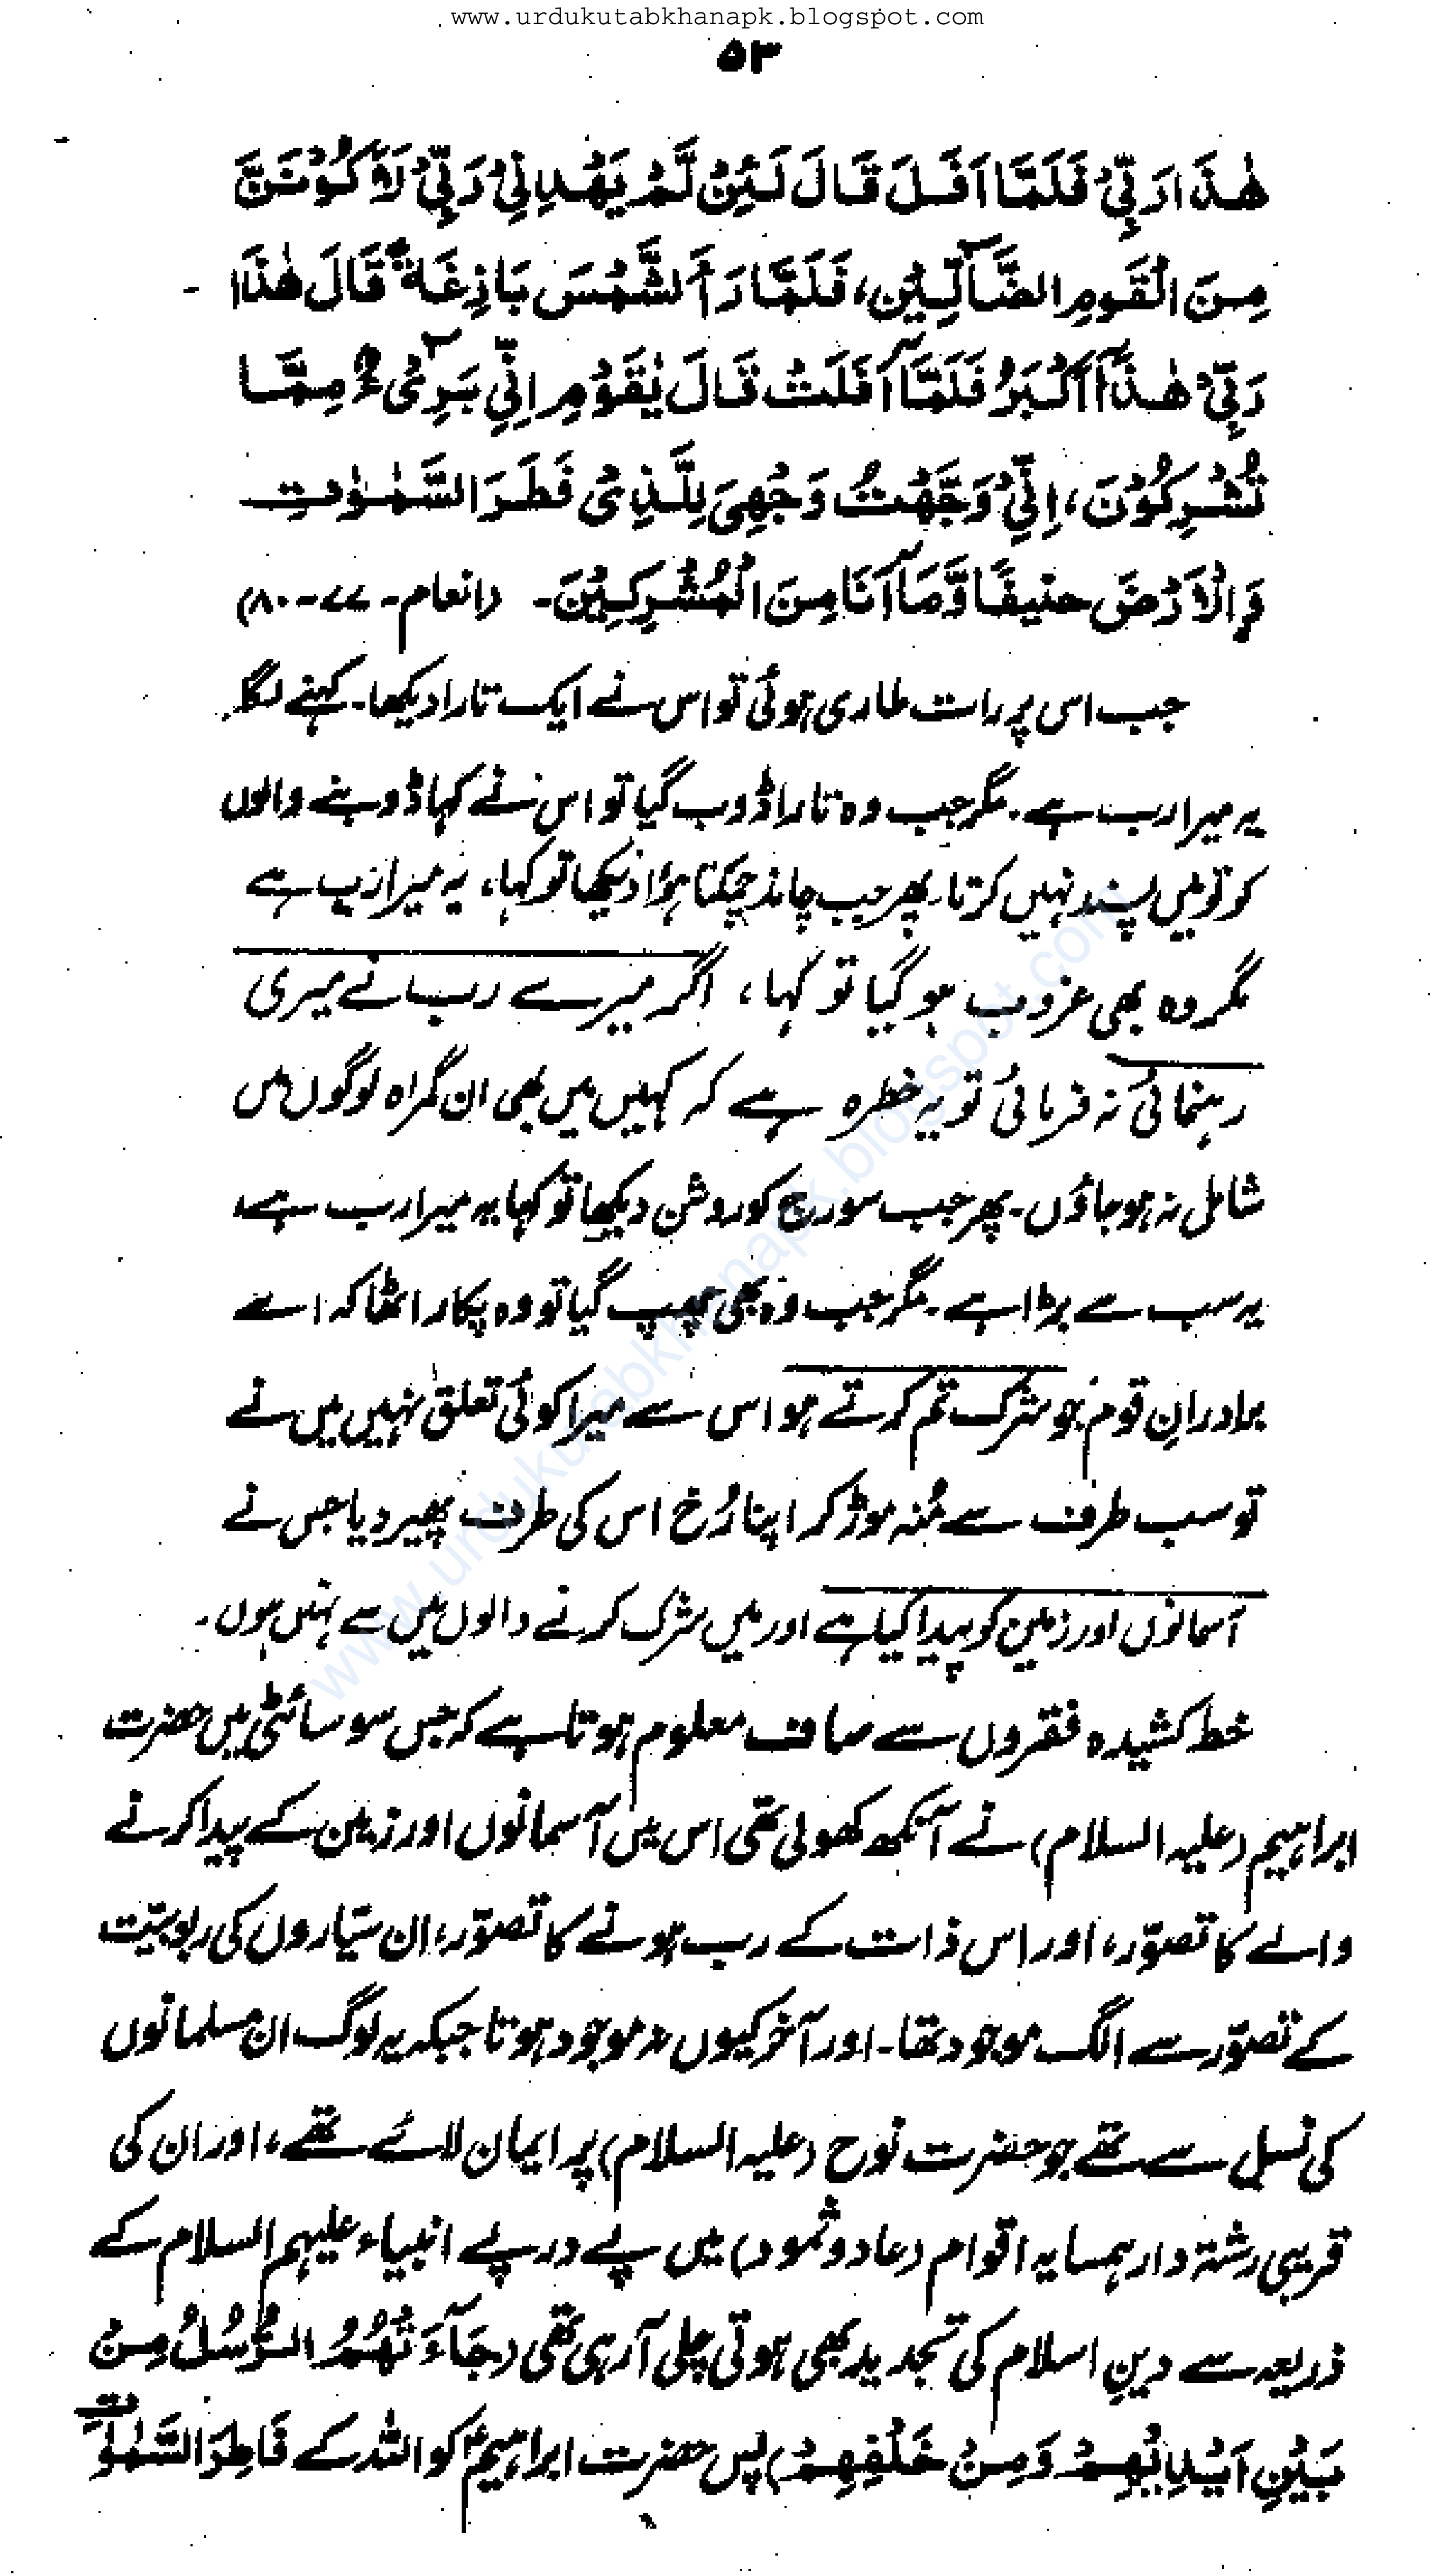 www.urdukutabkhanapk.blogspot.com
۵۳
هٰذَا رَبِّیْ فَلَمَّا اَفَلَ قَالَ لَئِنْ لَّمْ یَهْدِنِیْ رَبِّیْ لَاَکُوْنَنَّ
مِنَ الْقَوْمِ الضَّآلِّیْنَ، فَلَمَّا رَاَ الشَّمْسَ بَازِغَةً قَالَ هٰذَا
رَبِّیْ هٰذَآ اَکْبَرُ فَلَمَّآ اَفَلَتْ قَالَ یٰقَوْمِ اِنِّیْ بَرِیْٓءٌ مِمَّا
تُشْرِکُوْنَ، اِنِّیْ وَجَّهْتُ وَجْهِیَ لِلَّذِیْ فَطَرَ السَّمٰوٰتِ
وَالْاَرْضَ حَنِیْفًا وَّمَآ اَنَا مِنَ الْمُشْرِکِیْنَ۔ (انعام۔۷۷۔۸۰)
جب اس پر رات طاری ہوئی تو اس نے ایک تارا دیکھا۔ کہنے لگا
یہ میرا رب ہے۔ مگر جب وہ تارا ڈوب گیا تو اس نے کہا ڈوبنے والوں
کو تو میں پسند نہیں کرتا۔ پھر جب چاند چمکتا ہوا دیکھا تو کہا، یہ میرا رب ہے
مگر وہ بھی غروب ہو گیا تو کہا، اگر میرے رب نے میری
رہنمائی نہ فرمائی تو یہ خطرہ ہے کہ کہیں میں بھی ان گمراہ لوگوں میں
شامل نہ ہو جاؤں۔ پھر جب سورج کو روشن دیکھا تو کہا یہ میرا رب ہے،
یہ سب سے بڑا ہے۔ مگر جب وہ بھی چھپ گیا تو وہ پکار اٹھا کہ اے
برادرانِ قوم جو شرک تم کرتے ہو اس سے میرا کوئی تعلق نہیں میں نے
تو سب طرف سے مُنہ موڑ کر اپنا رُخ اس کی طرف پھیر دیا جس نے
آسمانوں اور زمین کو پیدا کیا ہے اور میں شرک کرنے والوں میں سے نہیں ہوں۔
خط کشیدہ فقروں سے صاف معلوم ہوتا ہے کہ جس سوسائٹی میں حضرت
ابراہیم (علیہ السلام) نے آنکھ کھولی تھی اس میں آسمانوں اور زمین کے پیدا کرنے
والے کا تصوّر، اور اس ذات کے رب ہونے کا تصوّر، ان سیّاروں کی ربوبیّت
کے تصوّر سے الگ موجود تھا۔ اور آخر کیوں نہ موجود ہوتا جبکہ یہ لوگ ان مسلمانوں
کی نسل سے تھے جو حضرت نوح (علیہ السلام) پر ایمان لائے تھے، اور ان کی
قریبی رشتہ دار ہمسایہ اقوام (عاد و ثمود) میں پے در پے انبیاء علیہم السلام کے
ذریعہ سے دینِ اسلام کی تجدید بھی ہوتی چلی آرہی تھی (جَآءَتْهُمُ الرُّسُلُ مِنْ
بَیْنِ اَیْدِیْهِمْ وَمِنْ خَلْفِهِمْ) پس حضرت ابراہیمؑ کو اللہ کے فَاطِرَ السَّمٰوٰتِ
www.urdukutabkhanapk.blogspot.com